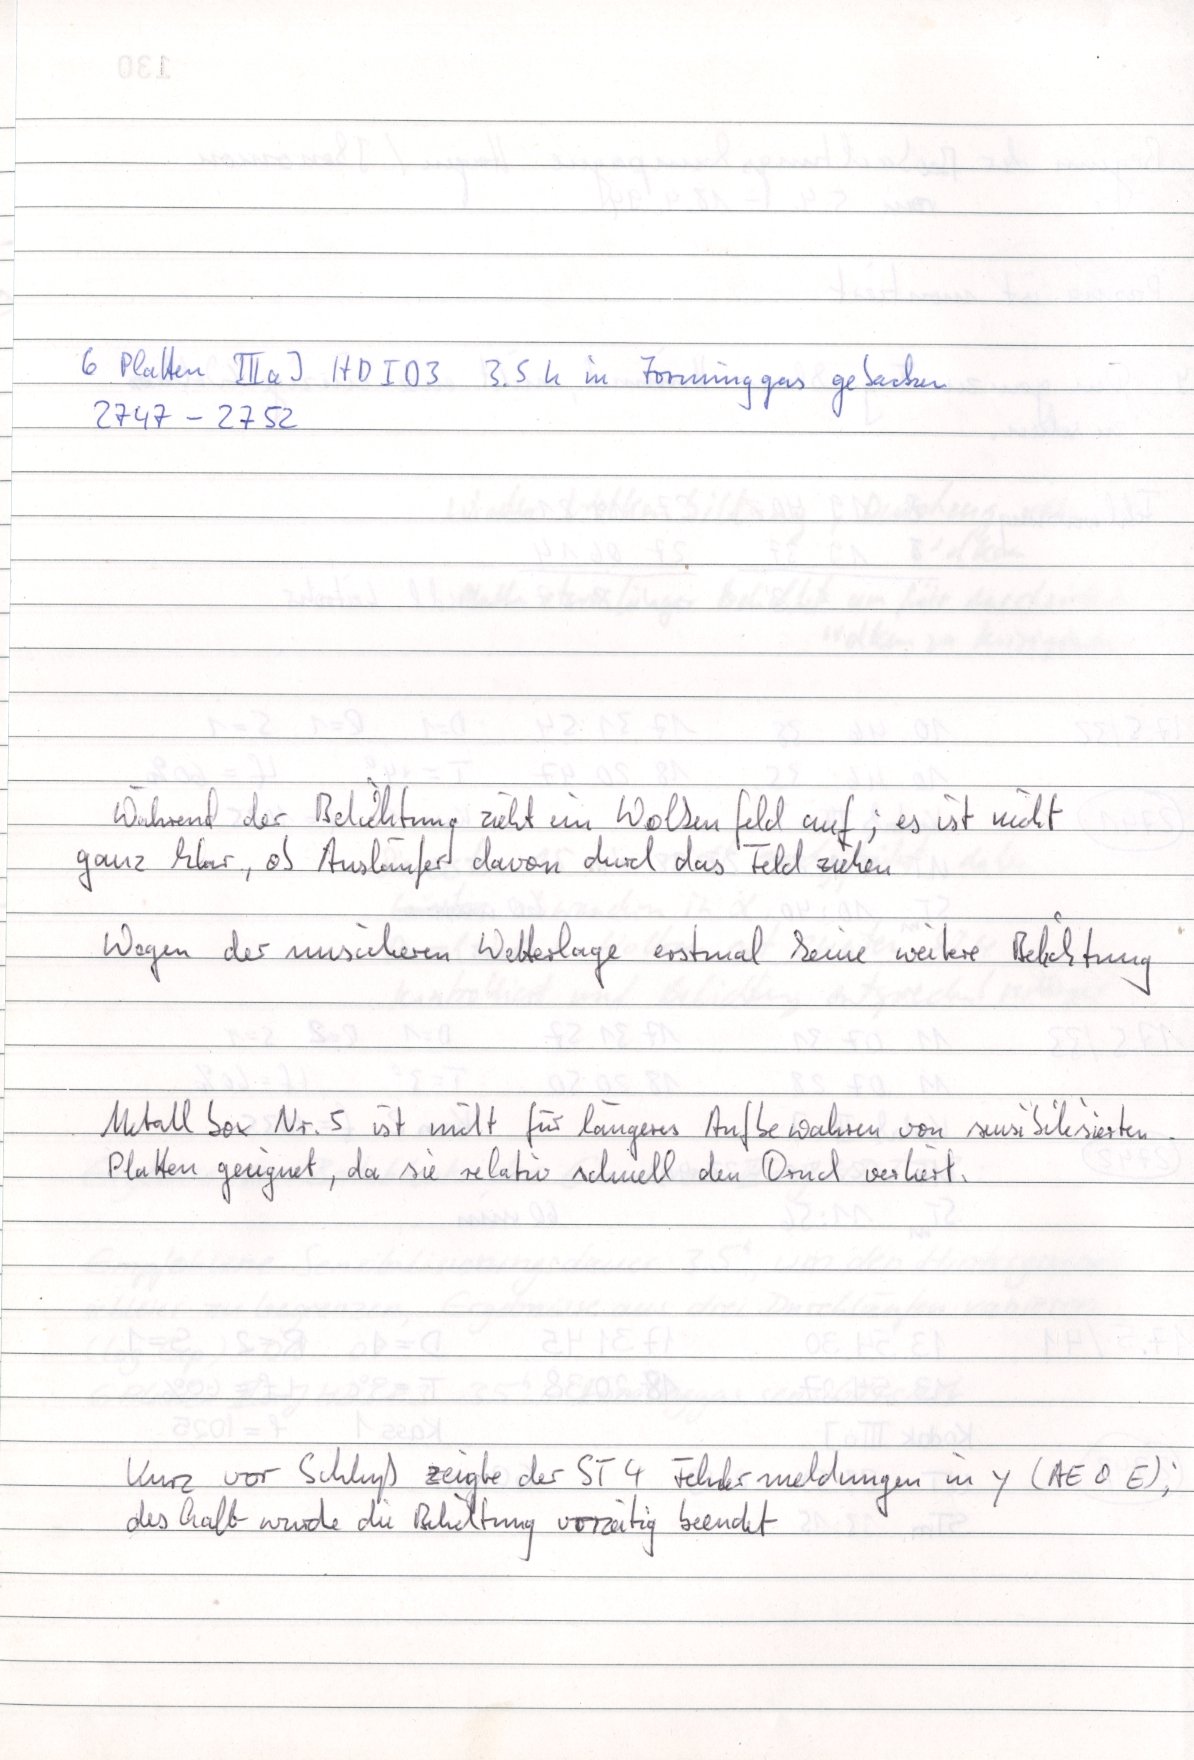 6 Platten IIIaJ HDIO3 3.5 h in Forminggas gebacken
2747 – 2752
Während der Belichtung zieht ein Wolkenfeld auf; es ist nicht
ganz klar, ob Ausläufer davon durch das Feld ziehen
Wegen der unsicheren Wetterlage erstmal keine weitere Belichtung
Metallbox Nr. 5 ist nicht für längeres Aufbewahren von sensibilisierten
Platten geeignet, da sie relativ schnell den Druck verliert.
Kurz vor Schluß zeigte der ST 4 Fehlermeldungen in y (AE 0 E);
deshalb wurde die Belichtung vorzeitig beendet